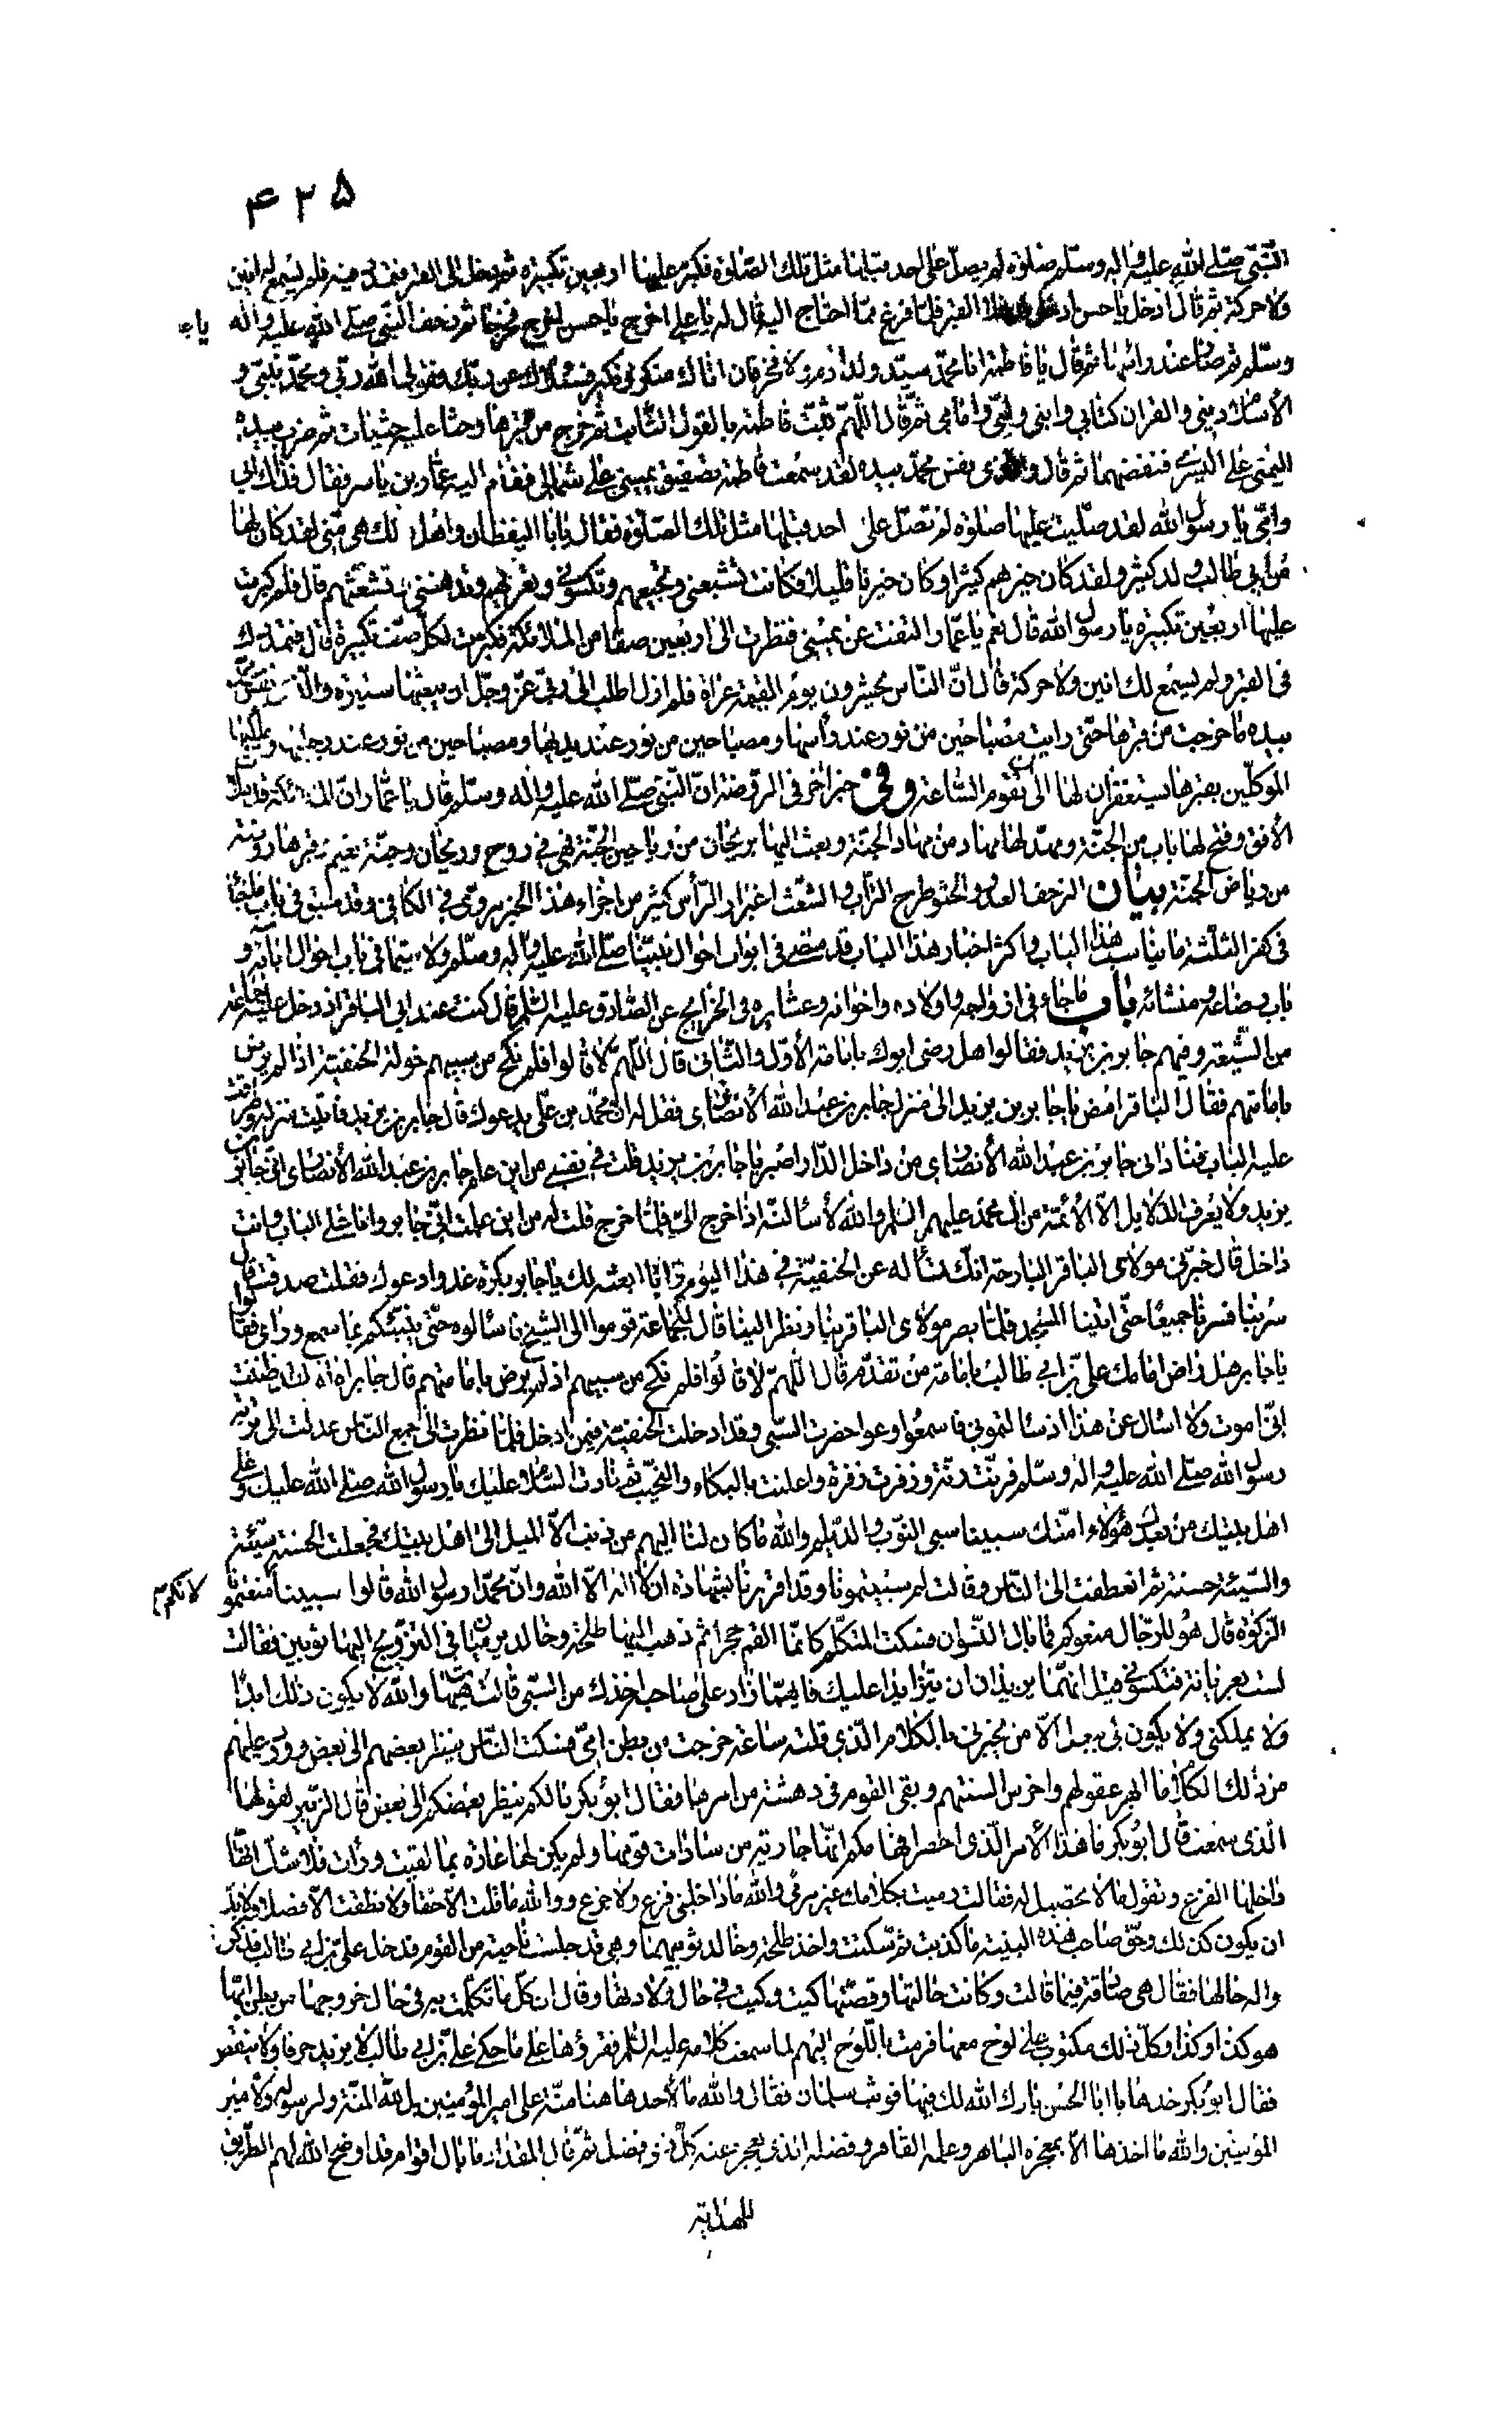 ۴۲۵
النّبيّ صلّى الله عليه واله وسلّم صلوة لم يصلّ على احد قبلها مثل تلك الصّلوة فكبّر عليها اربعين تكبيرة ثم دخل الى القبر فتمدّد فيه فلم يسمع له انين
ولا حركة ثمّ قال ادخل يا حسن القبر فلمّا فرغ ممّا احتاج اليه قال له يا على اخرج يا حسن اخرج فخرجا ثم زحف النّبي صلّى الله عليه واله
وسلّم ثم صار عند رأسها ثم قال يا فاطمة انا محمّد سيّد ولد ادم ولا فخر فان اتاك منكر ونكير فسئلاك عن ربّك فقولى الله ربّي ومحمّد نبيّي و
الأسلام ديني والقران كتابي وابني وليّي وامامي ثمّ قال اللّهمّ ثبّت فاطمة بالقول الثّابت ثمّ خرج من قبرها وحثا عليه حثيات ثم ضرب بيده
اليمنى على اليسرى فنفضهما ثم قال و نفس محمّد بيده لقد سمعت فاطمة تصفيق يميني على شمالي فقام اليه عمّار بن ياسر فقال فداك ابي
وامّي يا رسول الله لقد صلّيت عليها صلوة لم تصلّ على احد قبلها مثل تلك الصّلوة فقال يا ابا اليقظان واهل ذلك هي منّي لقد كان لها
من ابي طالب ولد كثير ولقد كان خيرهم كثيرا وكان خيرنا قليلا فكانت تشبعني وتجيعهم وتكسوني وتعريهم وتدهنني وتشعثهم قال فلم كبّرت
عليها اربعين تكبيرة يا رسول الله قال نعم يا عمّار التفتّ عن يميني فنظرت الى اربعين صفّا من الملائكة فكبّرت لكلّ صفّ تكبيرة قال فتمدّدك
فى القبر ولم يسمع لك انين ولا حركة قال انّ النّاس يحشرون يوم القيمة عراة فلم ازل اطلب الى ربّي عزّ وجلّ ان يبعثها ستيرة والّذى نفس محمّد
بيده ما خرجت من قبرها حتّى رايت مصباحين من نور عند رأسها ومصباحين من نور عند يديها ومصباحين من نور عند رجليها وملكيها
الموكّلين بقبرها يستغفران لها الى ان تقوم السّاعة وفى خبر اخر فى الرّوضة انّ النّبي صلّى الله عليه واله وسلّم قال يا عمّار انّ الملائكة قد
الأفق وفتح لها باب من الجنّة ومهّد لها مهاد من مهاد الجنّة وبعث اليها بريحان من رياحين الجنّة فهي في روح وريحان وجنّة نعيم وقبرها روضة
من رياض الجنّة بيان الزحف العدو والحثو طرح التراب والشعث اغبرار الرّأس كثير من اجزاء هذا الخبر مروي في الكافي وقد سبق فى باب
فى كفر الثلثة ما يناسب هذا الباب واكثر اخبار هذا الباب قد مضى فى ابواب احوال نبيّنا صلّى الله عليه واله وسلّم ولا سيّما فى باب احوال ابائه و
باب رضاعه ومنشائه باب ما جاء في ازواجه واولاده واخوانه وعشايره فى الخرايج عن الصّادق عليه السّلم قال كنت عند ابي الباقر اذ دخل عليه جماعة
من الشّيعة وفيهم جابر بن يزيد فقالوا هل رضى ابوك بامامة الأوّل والثّانى قال اللّهمّ لا قالوا فلم نكح من سبيهم خولة الحنفيّة اذا لم يرض
بامامتهم فقال الباقر امض يا جابر بن يزيد الى منزل جابر بن عبد الله الأنصارى فقل له انّ محمّد بن على يدعوك قال جابر بن يزيد فاتيت منزله وطرقت
عليه الباب فنادانى جابر بن عبد الله الأنصارى من داخل الدّار اصبر يا جابر بن يزيد قلت في نفسى من اين علم جابر بن عبد الله الأنصارى انّى جابر بن
يزيد ولا يعرف الدّلايل الّا الأئمّة من ال محمّد عليهم السّلم والله لأسالنّه اذا خرج اليّ فلمّا خرج قلت له من اين علمت انّي جابر وانا على الباب وانت
داخل قال خبّرنى مولاى الباقر البارحة انّك تسأله عن الحنفيّة في هذا اليوم وانا ابعثه لك يا جابر بكرة غد وادعوك فقلت صدقت قال
سر بنا فسرنا جميعا حتّى اتينا المسجد فلمّا بصر مولاى الباقر بنا ونظر الينا قال للجماعة قوموا الى الشيخ فاسالوه حتّى ينبّئكم بما سمع وراى فقالوا
يا جابر هل راض امامك على بن ابي طالب بامامة من تقدّم قال اللّهمّ لا قالوا فلم نكح من سبيهم اذ لم يرض بامامتهم قال جابر اه اه لقد ظننت
انّى اموت ولا اسال عن هذا اذ سالتموني فاسمعوا وعوا حضرت السّبى وقد ادخلت الحنفيّة فيمن ادخل فلمّا نظرت الى جميع النّاس عدلت الى تربة
رسول الله صلّى الله عليه واله وسلّم فرنّت رنّة وزفرت زفرة واعلنت بالبكاء والنّحيب ثمّ نادت السّلام عليك يا رسول الله صلّى الله عليك وعلى
اهل بيتك من بعدك هؤلاء امّتك سبينا سبى النّوب والدّيلم والله ما كان لنا اليهم من ذنب الّا الميل الى اهل بيتك فجعلت الحسنة سيّئة
والسّيئة حسنة ثم انعطفت الى النّاس وقالت لم سبيتمونا وقد اقررنا بشهادة ان لا اله الا الله وانّ محمّدا رسول الله قالوا سبينا لانّكم منعتمونا
الزّكوة قال هؤ الرّجال منعوكم فما بال النّسوان فسكت المتكلّم كانّما القم حجرا ثم ذهب اليها طلحة وخالد يرميان فى التزويج اليها ثوبين فقالت
لست بعريانة فتكسوني قيل انّهما يريدان ان يتزايدا عليك فايّهما زاد على صاحبه اخذك من السّبى قالت هيهات والله لا يكون ذلك ابدا
ولا يملكني ولا يكون لى بعل الّا من يخبرني بالكلام الّذي قلته ساعة خرجت من بطن امّي فسكت النّاس ينظر بعضهم الى بعض وورد عليهم
من ذلك الكلام ما ابهر عقولهم واخرس السنتهم وبقى القوم فى دهشة من امرها فقال ابو بكر ما لكم ينظر بعضكم الى بعض قال الزّبير لقولها
الّذى سمعت قال ابو بكر ما هذا الأمر الّذى احصر افهامكم انّها جارية من سادات قومها ولم يكن لها عادة بما لقيت ورأت فلا شكّ انّها
داخلها الفزع وتقول ما لا تحصيل له فقالت رميت بكلامك غير مرمي والله ما داخلني فزع ولا جزع ووالله ما قلت الّا حقّا ولا نطقت الّا فصلا ولا بدّ
ان يكون كذلك وحقّ صاحب هذه البنية ما كذبت ثمّ سكتت واخذ طلحة وخالد ثوبيهما وهي قد جلست ناحية من القوم فدخل على بن ابي طالب فذكروا
واله حالها فقال هي صادقة فيما قالت وكانت حالتها وقصّتها كيت وكيت في حال ولادتها وقال ان كلّ ما تكلّمت به فى حال خروجها من بطن امّها
هو كذا وكذا وكلّ ذلك مكتوب على لوح معها فرمت باللّوح اليهم لما سمعت كلامه عليه السّلم فقرؤها على ما حكى على بن ابي طالب لا يزيد حرفا ولا ينقص
فقال ابو بكر خذها يا ابا الحسن بارك الله لك فيها فوثب سلمان فقال والله ما لأحد هاهنا منّة على امير المؤمنين بل لله المنّة ولرسوله ولأمير
المؤمنين والله ما اخذها الّا بمعجزه الباهر وعلمه القاهر وفضله الذي يعجز عنه كلّ ذى فضل ثمّ قال المقداد ما بال اقوام قد اوضح الله لهم الطّريق
للهداية